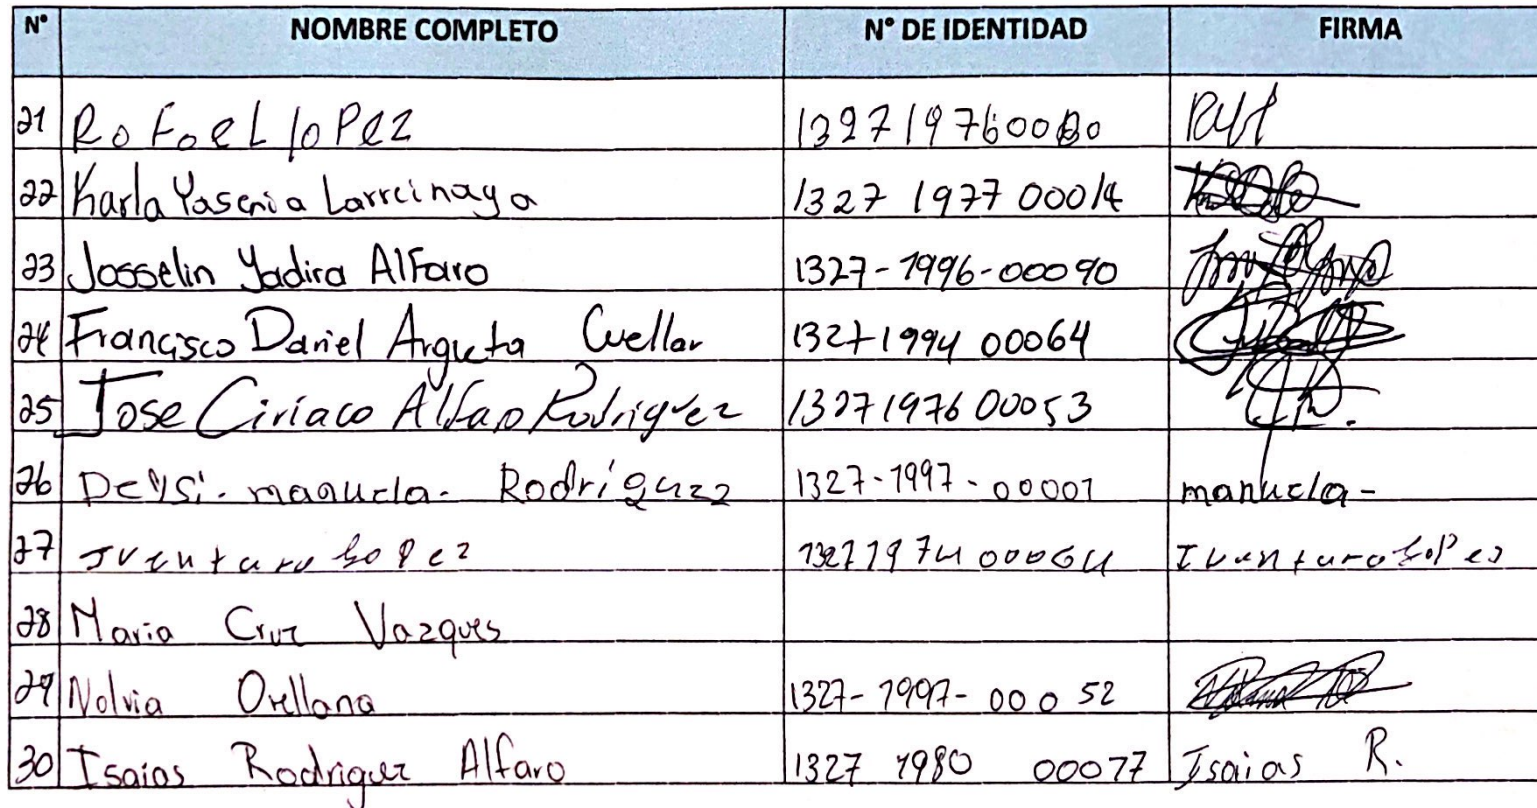 N° NOMBRE COMPLETO N° DE IDENTIDAD FIRMA
21 RoFoeL loPez 1327197600080
22 Karla Yasenia Larreinaga 1327 1977 00014
23 Josselin Yadira Alfaro 1327-1996-00090
24 Francisco Daniel Argueta Cuellar 13271994 00064
25 Jose Ciriaco Alfaro Rodriguez 1327197600053
26 Deysi. manuela. Rodríguez 1327-1997-00001 manuela-
27 Iventuro LoPez 1327197400064 Iventuro LoPez
28 Maria Cruz Vazques
29 Nolvia Orellana 1327-1997-00052
30 Isaias Rodriguez Alfaro 1327 1980 00077 Isaias R.